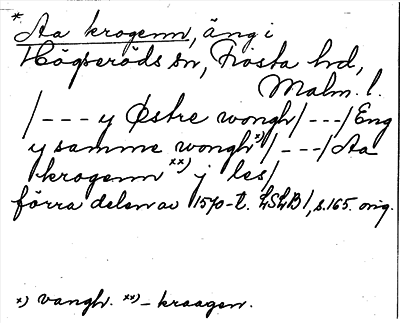 * Aa krogenn, äng i
Högseröds sn, Frosta hd,
Malm. l.
/--- y Østre wongh/---/Eng
y samme wongh x)/---/Aa
krogenn xx) j les/
förra delen av 1570-t. LSLB1, s.165. orig.
x) vangh. xx) - kraagen.